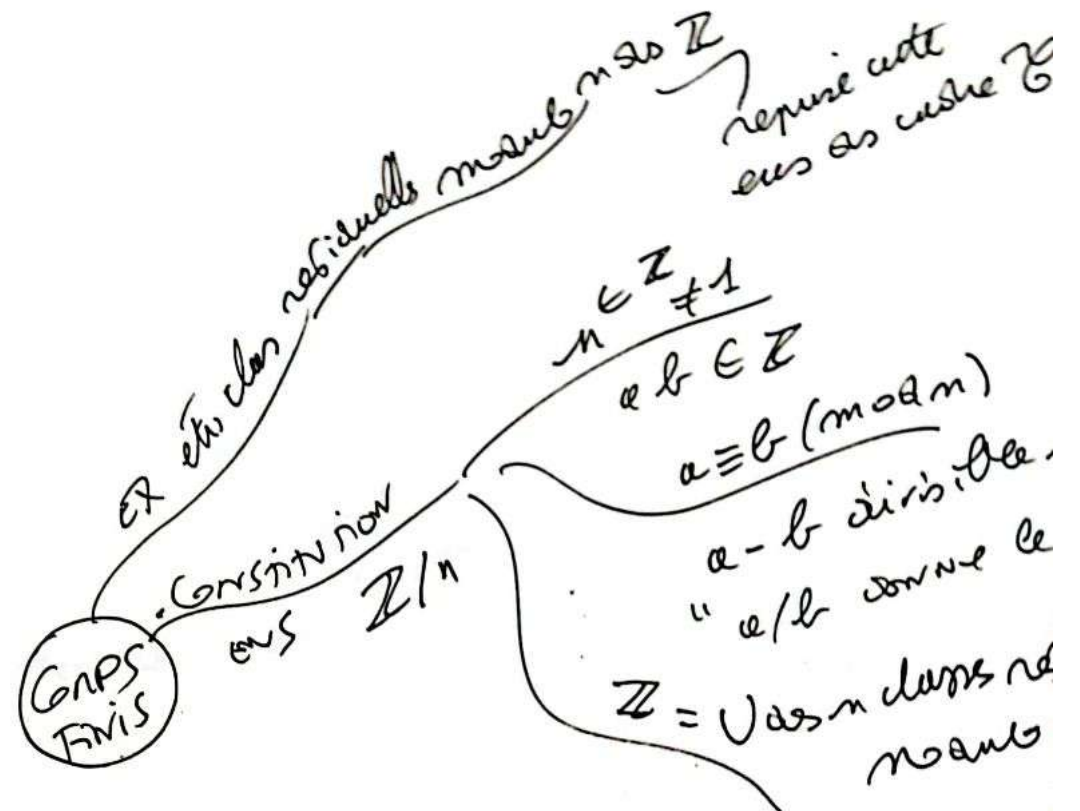 Corps
Finis
ex étu clas résiduelles modulo n ds Z
ens
Constitution
ens Z/n
n ∈ Z ≠ 1
a b ∈ Z
a ≡ b (mod n)
a - b divisible
" a/b donne le
Z = U des n classes ré
modulo